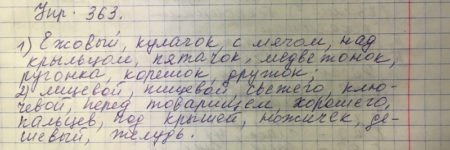 Упр. 363.
1) Ежовый, кулачок, с мячом, над
крыльцом, пятачок, медвежонок,
ручонка, корешок, дружок;
2) лицевой, пищевой свежего, клю-
чевой, перед товарищем, хорошего,
пальцев, под крышей, ножичек, де-
шевый, желудь.